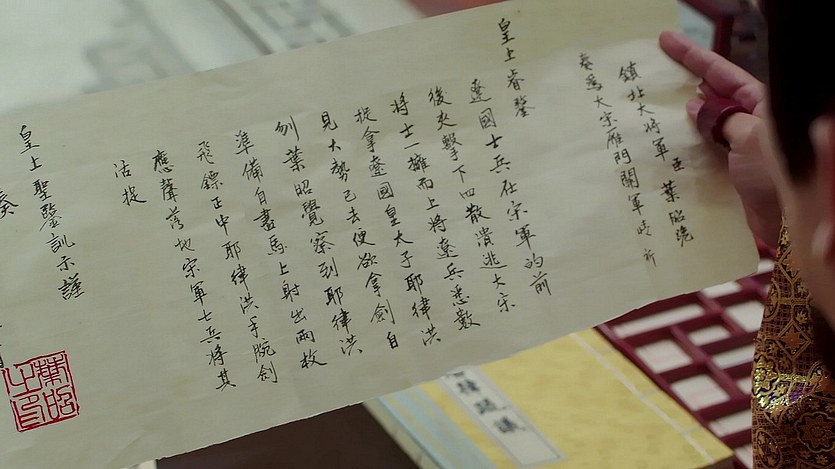 鎮北大將軍 臣 葉昭跪
奏爲大宋雁門關軍
皇上睿鑒
遼國士兵在宋軍的前
後夾擊下四散潰逃大宋
將士一擁而上將遼兵悉數
捉拿遼國皇太子耶律洪
見大勢已去便欲拿劍自
刎葉昭覺察到耶律洪
準備自盡馬上射出兩枚
飛鏢正中耶律洪手腕劍
應聲落地宋軍士兵將其
活捉
皇上聖鑒訓示謹
奏
葉昭之印
疏議